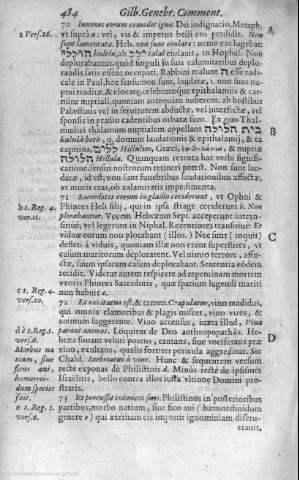 484 Gilb. Genebr. Comment.
70 Juvenes eorum comedit ignis Dei indignatio, Metaph,
2 Vers. 26. vt suprà a: vel, vis & impetus belli eos perdidit. Non
sunt lamentatæ. Heb. non sunt
A
deplorabantur, quòd singuli in suis calamitatibus deplo-
randis satis essent occupati. Rabbini malunt esse radi-
cale in Paul, hoc sensu: non sunt laudatæ, i. non sunt nu-
ptui traditæ, & elogiis celebratæ: quæ epithalamiis & car-
mine nuptiali, quoniam antequam nuberent, ab hostibus
Palæstinis vel in seruitutem abductæ, vel interfectæ, vel
sponsis in prælio cadentibus orbatæ sunt. Ex quo Thal-
mudici thalamum nuptialem appellant בית הלולה
B
domum laudationis & epithalamij, & ea
carmina, הלולים Hillulim, Græci,
הלולה Hillula. Quanquam retenta hac verbi signifi-
catione, sensus nostrorum retineri potest. Non sunt lau-
datæ, id est, non sunt funebribus laudationibus affectæ,
vt moris erat, ob calamitatis impedimenta.
71 Sacerdotes eorum in gladio ceciderunt, vt Ophni &
b 1. Reg. 4. Phinees Heli filij, qui in ipsa strage ceciderunt b. Non
ver. 11. plorabantur. Vocem Hebræam Sept. acceperunt intran-
sitiuè, vel legerunt in Niphal. Recentiores transitiuè: Et
viduæ eorum non plorabant (illos.) Nec sunt (inquit)
C
defleti à viduis, quoniam illæ non erant superstites, vt
casum maritorum deplorarent. Vel nimio terrore, affe-
ctæ, suum ipsarum casum deplorabant. Sententia eòdem
recidit. Videtur autem respicere ad repentinam mortem
vxoris Phinees Sacerdotis, quæ spatium lugendi mariti
c 1. Reg. 4. non habuit c.
ver. 20. 72 Et excitatus est, & tamen. Crapulatus, vino madidus,
qui omnia clamoribus & plagis miscet, vino vires, &
animum suggerente. Vino accensus, iuxta illud, Vina
d 1. Reg. 5. parant animos. Loquitur de Deo anthropopathῶs. He-
vers. 6. bræa sonant veluti potens, cantans, siue vociferans præ
Morbus na vino, exultans, qualis fortiter pericula aggreditur. Sic
tium, siue Chald. Inebriatus à vino. Hunc & sequentem versum
ficus ani, recte exponas de Philistinis d. Minùs rectè de ipsismet
hæmorrhoi- Israëlitis, bello contra illos iusta vltione Domini pro-
dum species stratis.
fuit. 73 Et percussit inimicos suos. Philistinos in posterioribus
e 1. Reg. 5. partibus, morbo natium, siue fici ani (hæmorrhoidum
vers. 6. genere e) qui æternam eis imponit ignominiam discru-
ciauit,